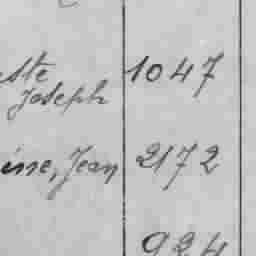 ste 1047
Joseph
isse, Jean 2172
924